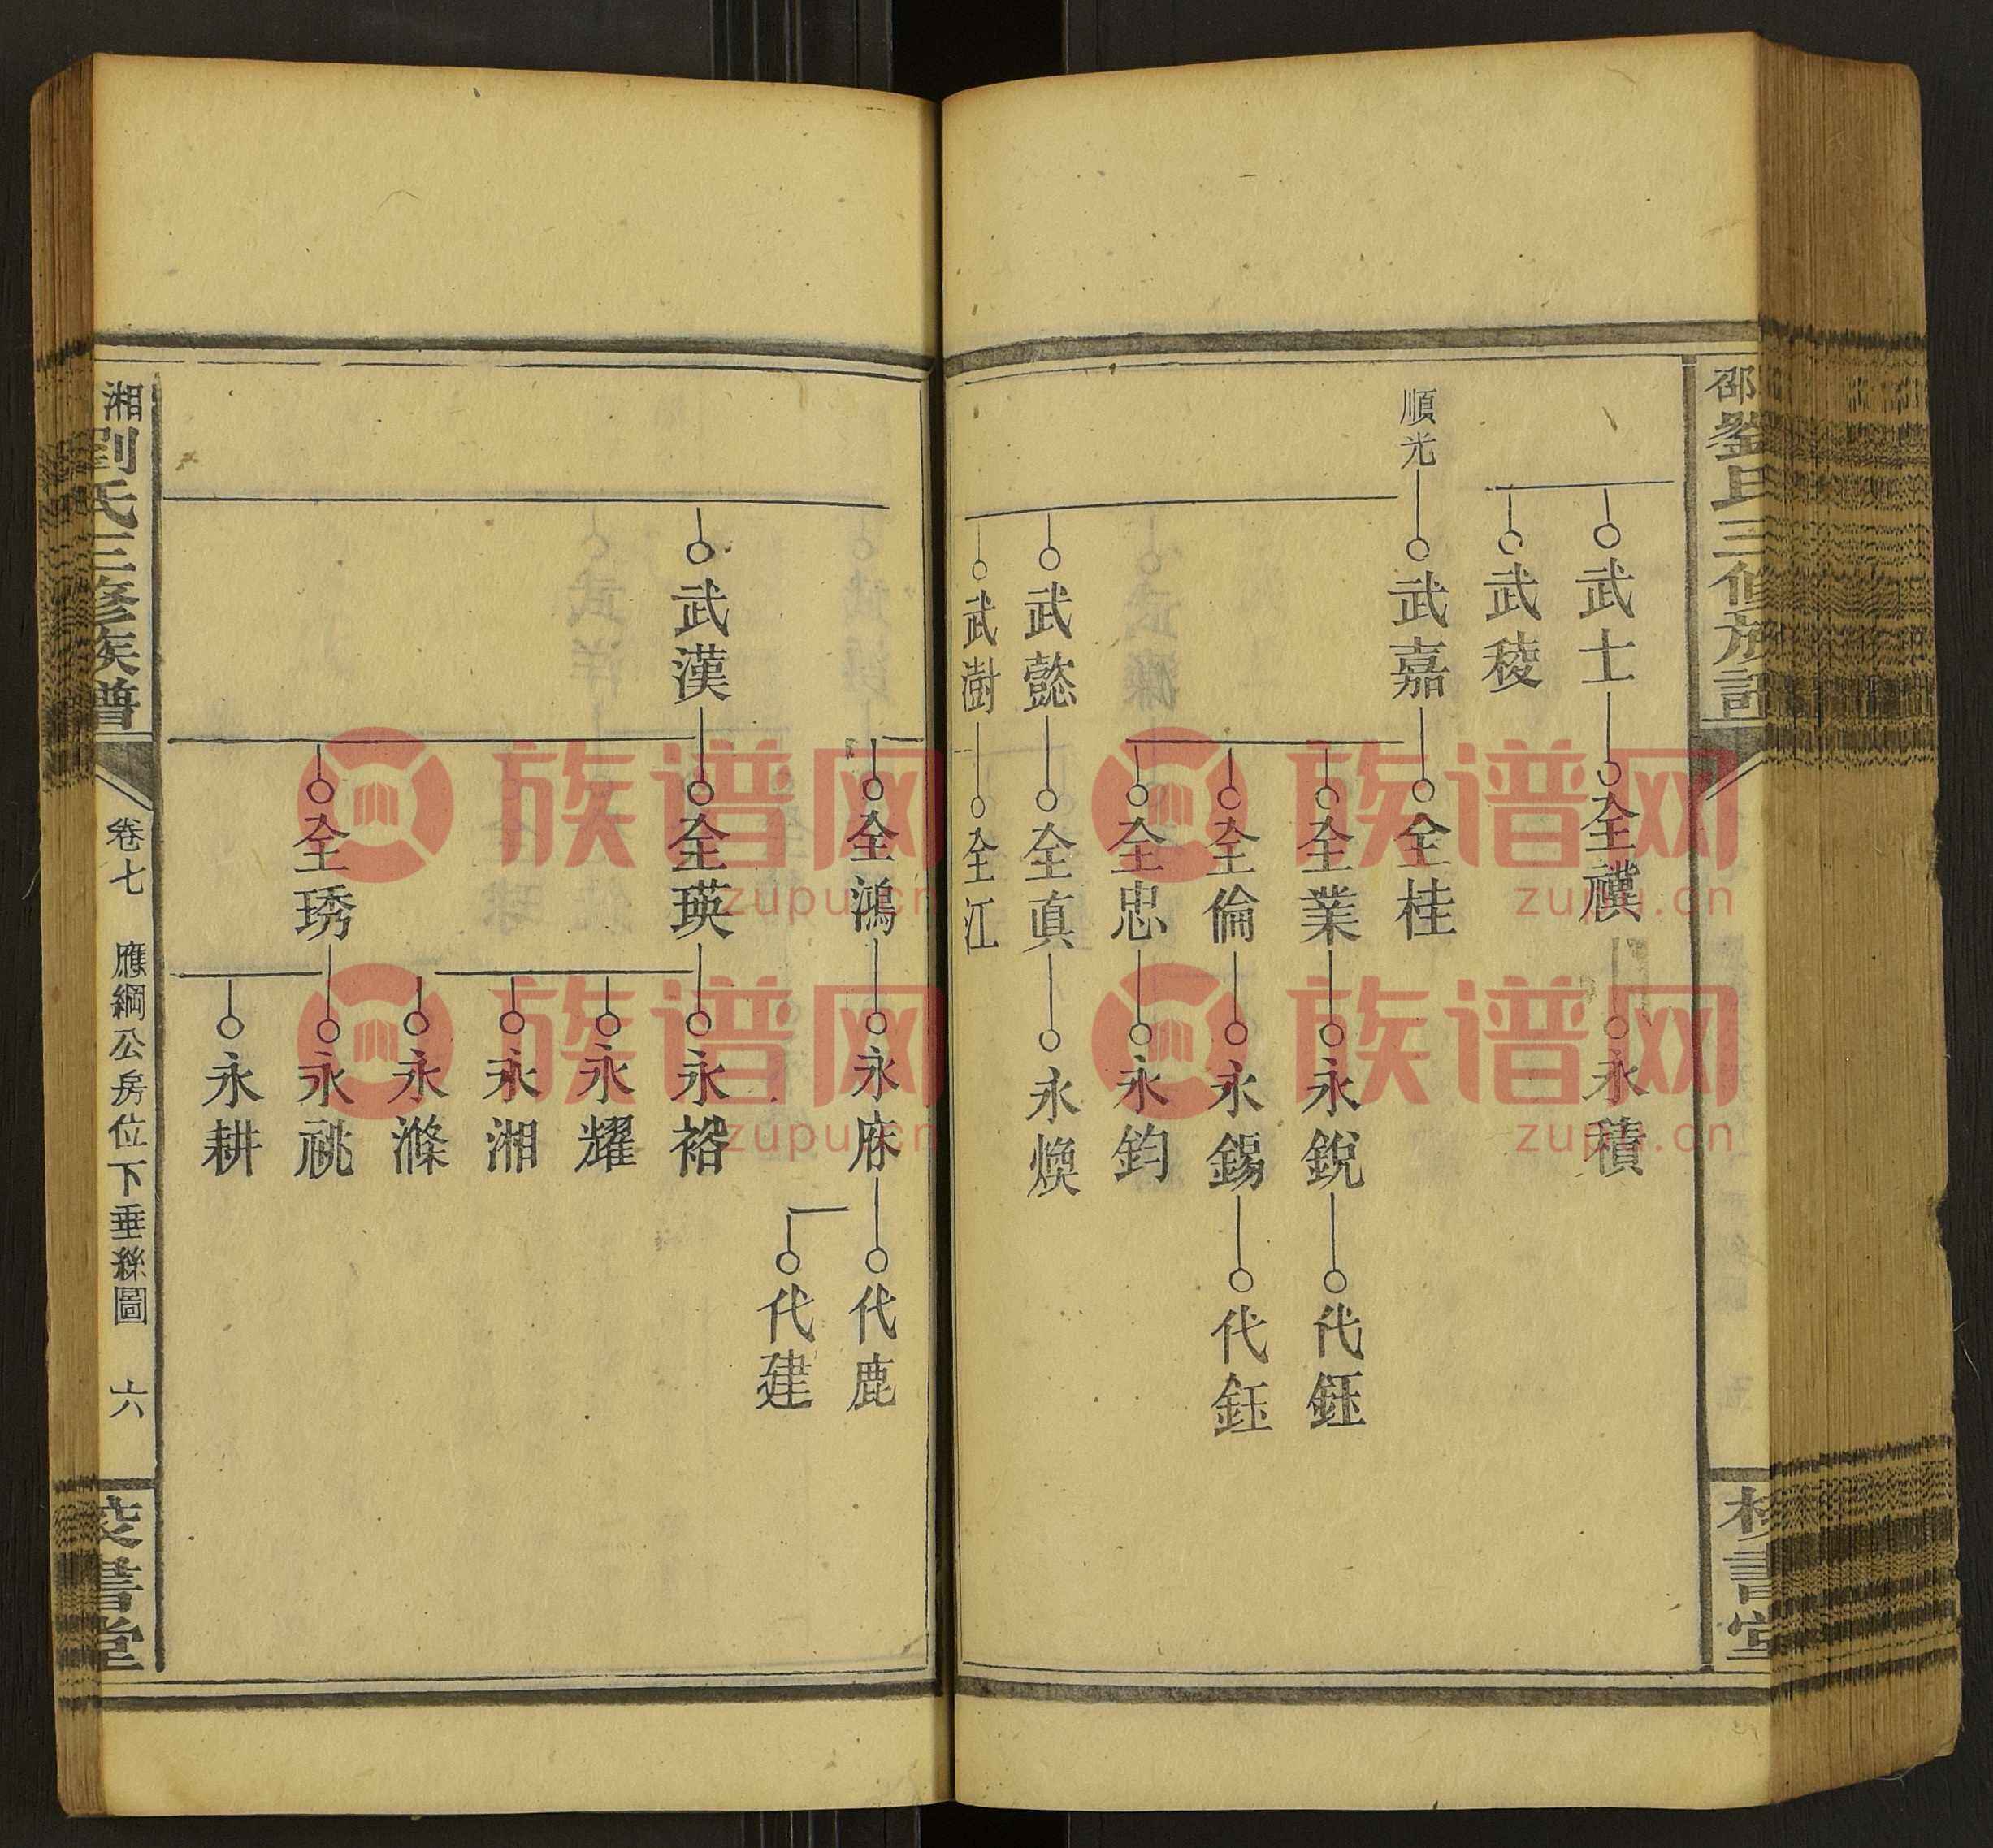 順光
武士
武稜
武嘉
武懿
武澍
全禥
全桂
全業
全倫
全忠
全真
全江
永積
永銳
永錫
永鈞
永煥
代鈺
代鈺
武漢
全鴻
全瑛
全琇
永庥
永裕
永耀
永湘
永滌
永祧
永耕
代鹿
代建
湘劉氏三修族譜
卷七 應綱公房位下垂絲圖 六
校書堂
邵劉氏三修族譜
校書堂
族谱网
zupu.cn
族谱网
zupu.cn
族谱网
zupu.cn
族谱网
zupu.cn